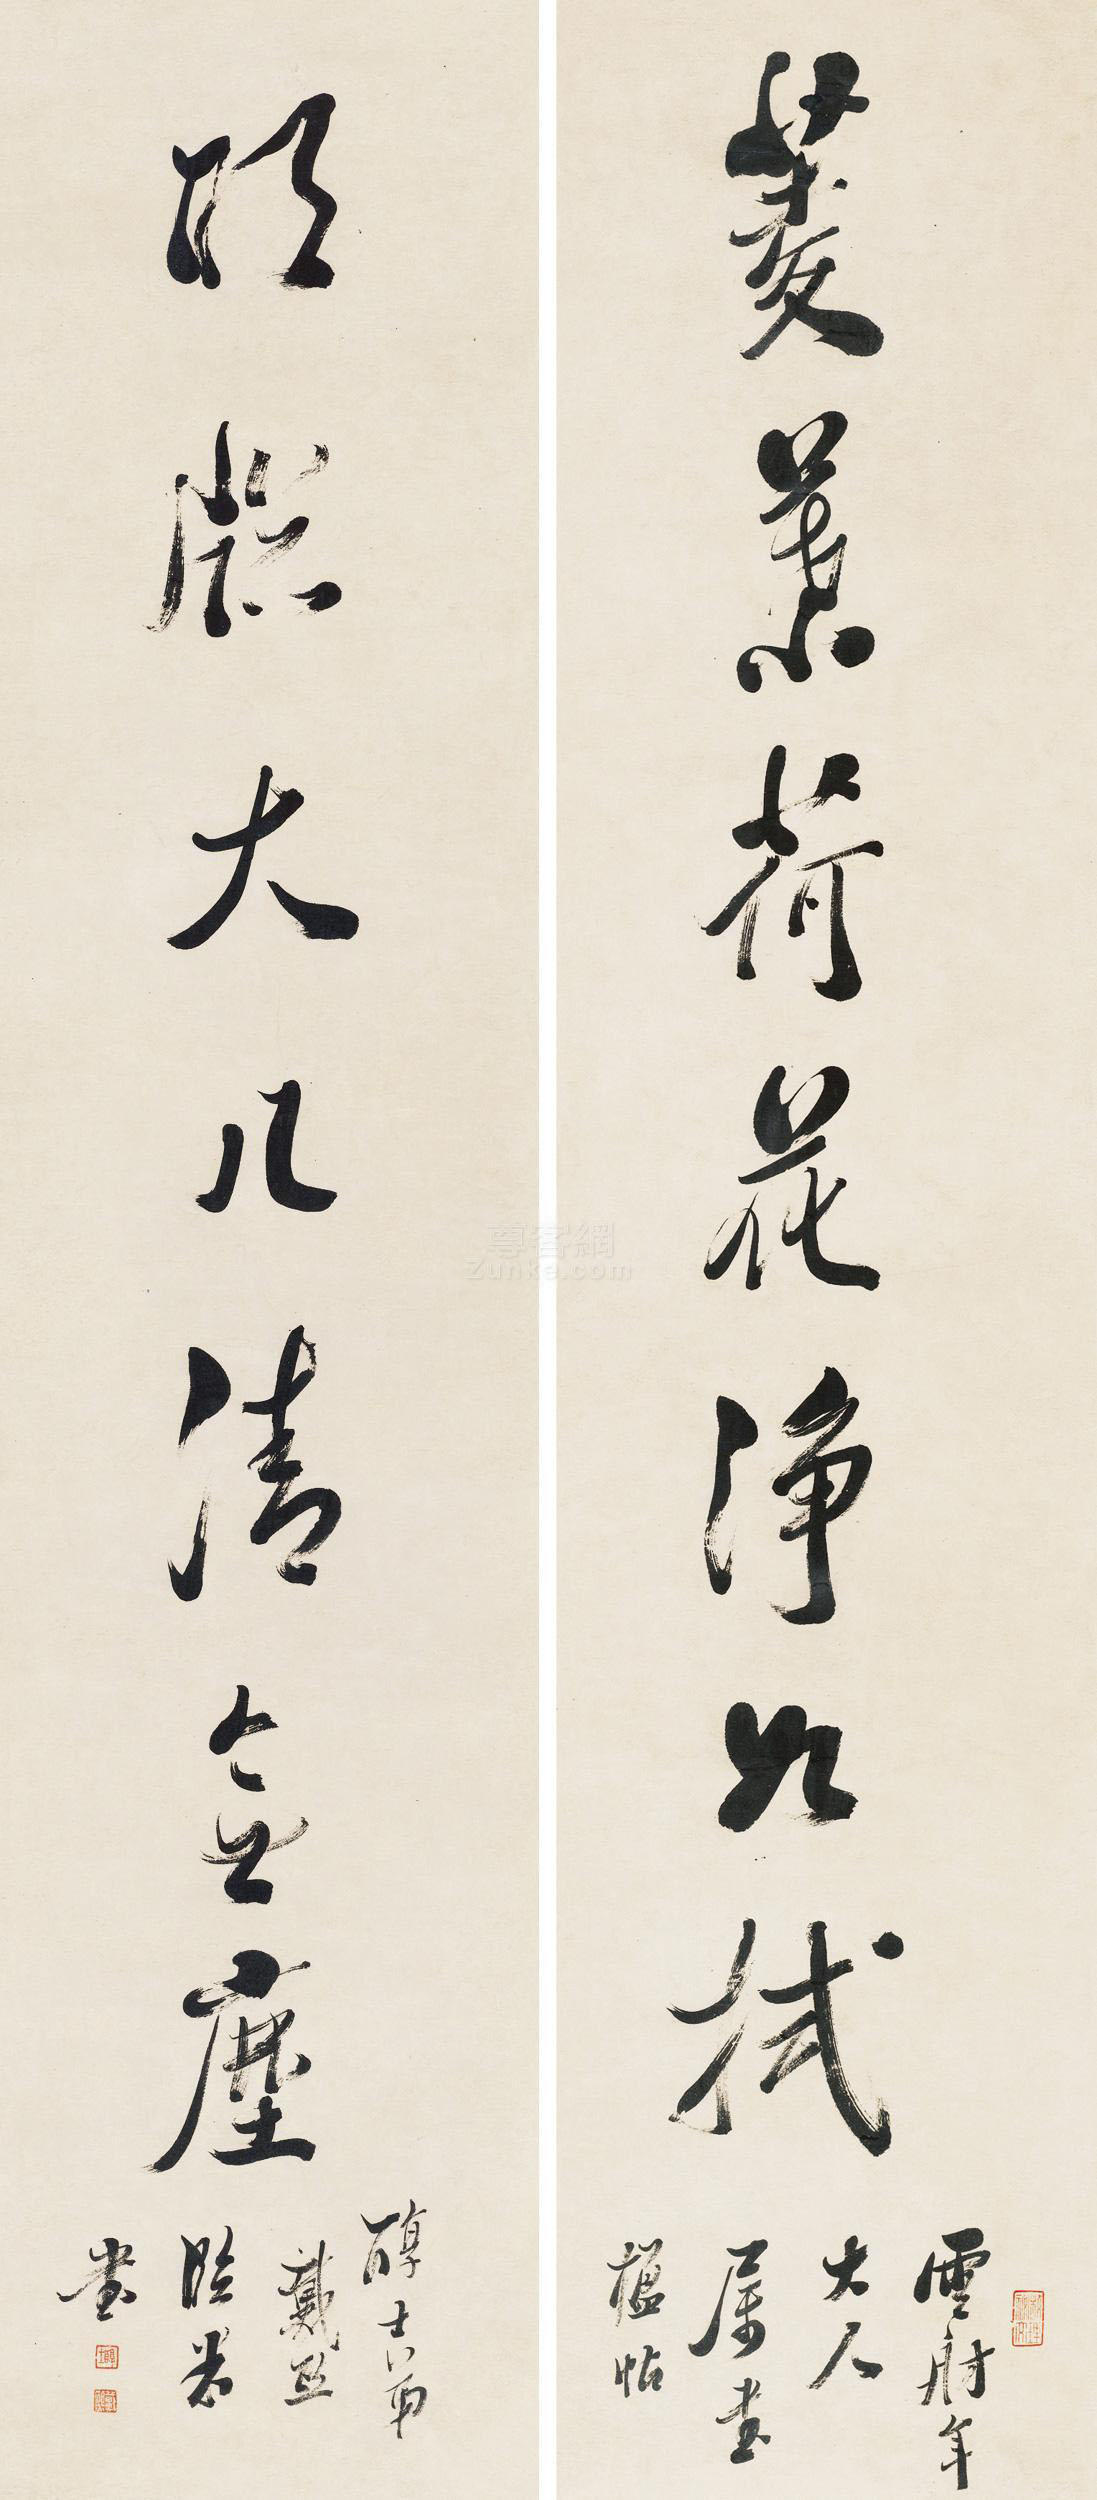 菱葉荷花淨如拭
雲年
大人
屬書
楹帖
明牕大几清無塵
醇士弟
戴熙
書
尊客網
Zunke.com